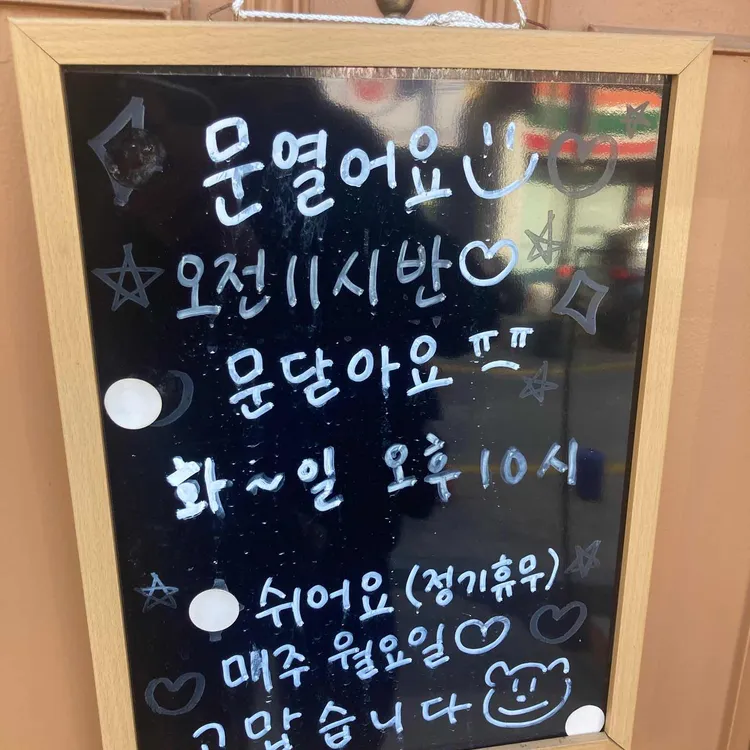 문열어요
오전 11시 반
문닫아요 ㅠㅠ
화~일 오후 10시
쉬어요 (정기휴무)
매주 월요일
고맙습니다